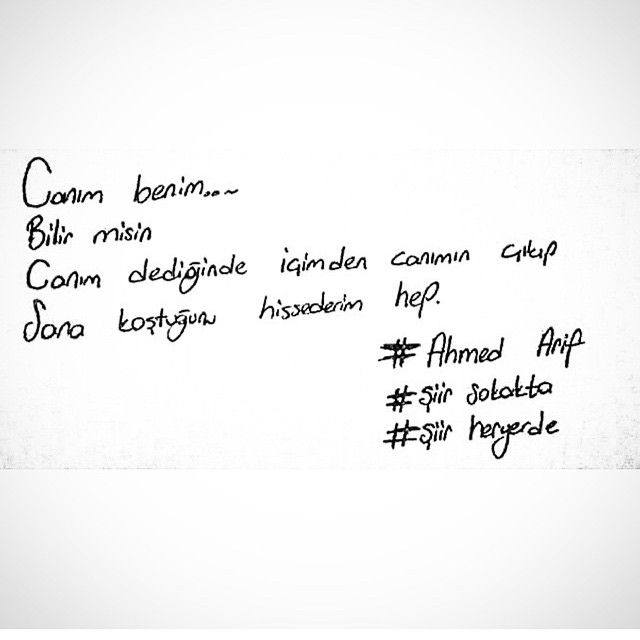 Canım benim...~
Bilir misin
Canım dediğinde içimden canımın çıkıp
Sana koştuğunu hissederim hep.
# Ahmed Arif
#şiir sokakta
#şiir heryerde